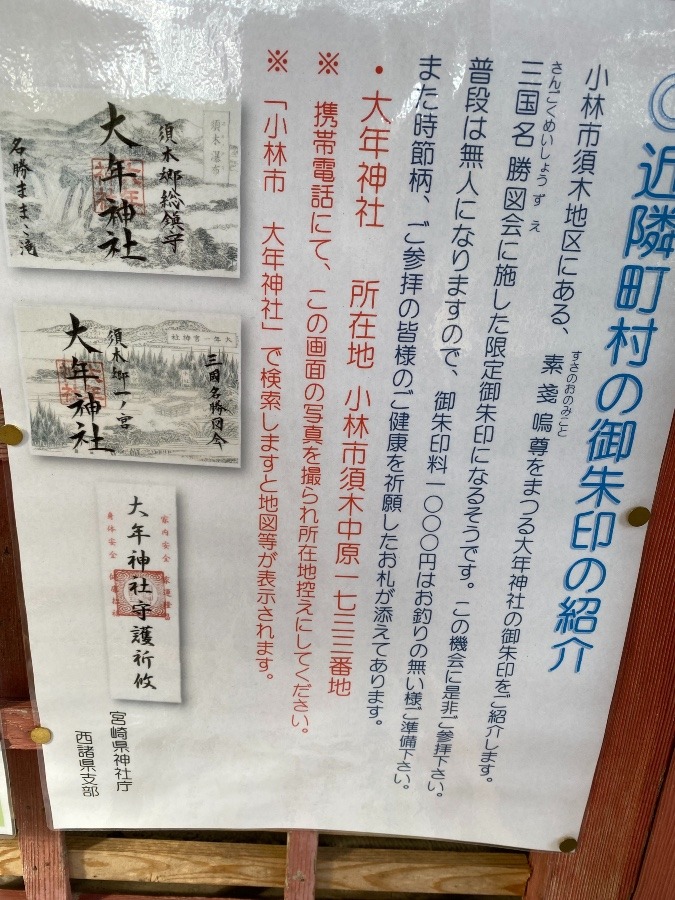 ◎近隣町村の御朱印の紹介
小林市須木地区にある、素戔嗚尊をまつる大年神社の御朱印をご紹介します。
すさのおのみこと
三国名勝図会に施した限定御朱印になるそうです。この機会に是非ご参拝下さい。
さんごくめいしょうずえ
普段は無人になりますので、御朱印料一〇〇〇円はお釣りの無い様ご準備下さい。
また時節柄、ご参拝の皆様のご健康を祈願したお札が添えてあります。
・大年神社 所在地 小林市須木中原一七三三番地
※ 携帯電話にて、この画面の写真を撮られ所在地控えにしてください。
※ 「小林市 大年神社」で検索しますと地図等が表示されます。
須木瀑布
須木郷総鎮守
大年神社
名勝まゝこ滝
三国名勝図会
須木郷一ノ宮
大年神社
家内安全
大年神社守護祈攸
身体安全
宮崎県神社庁
西諸県支部